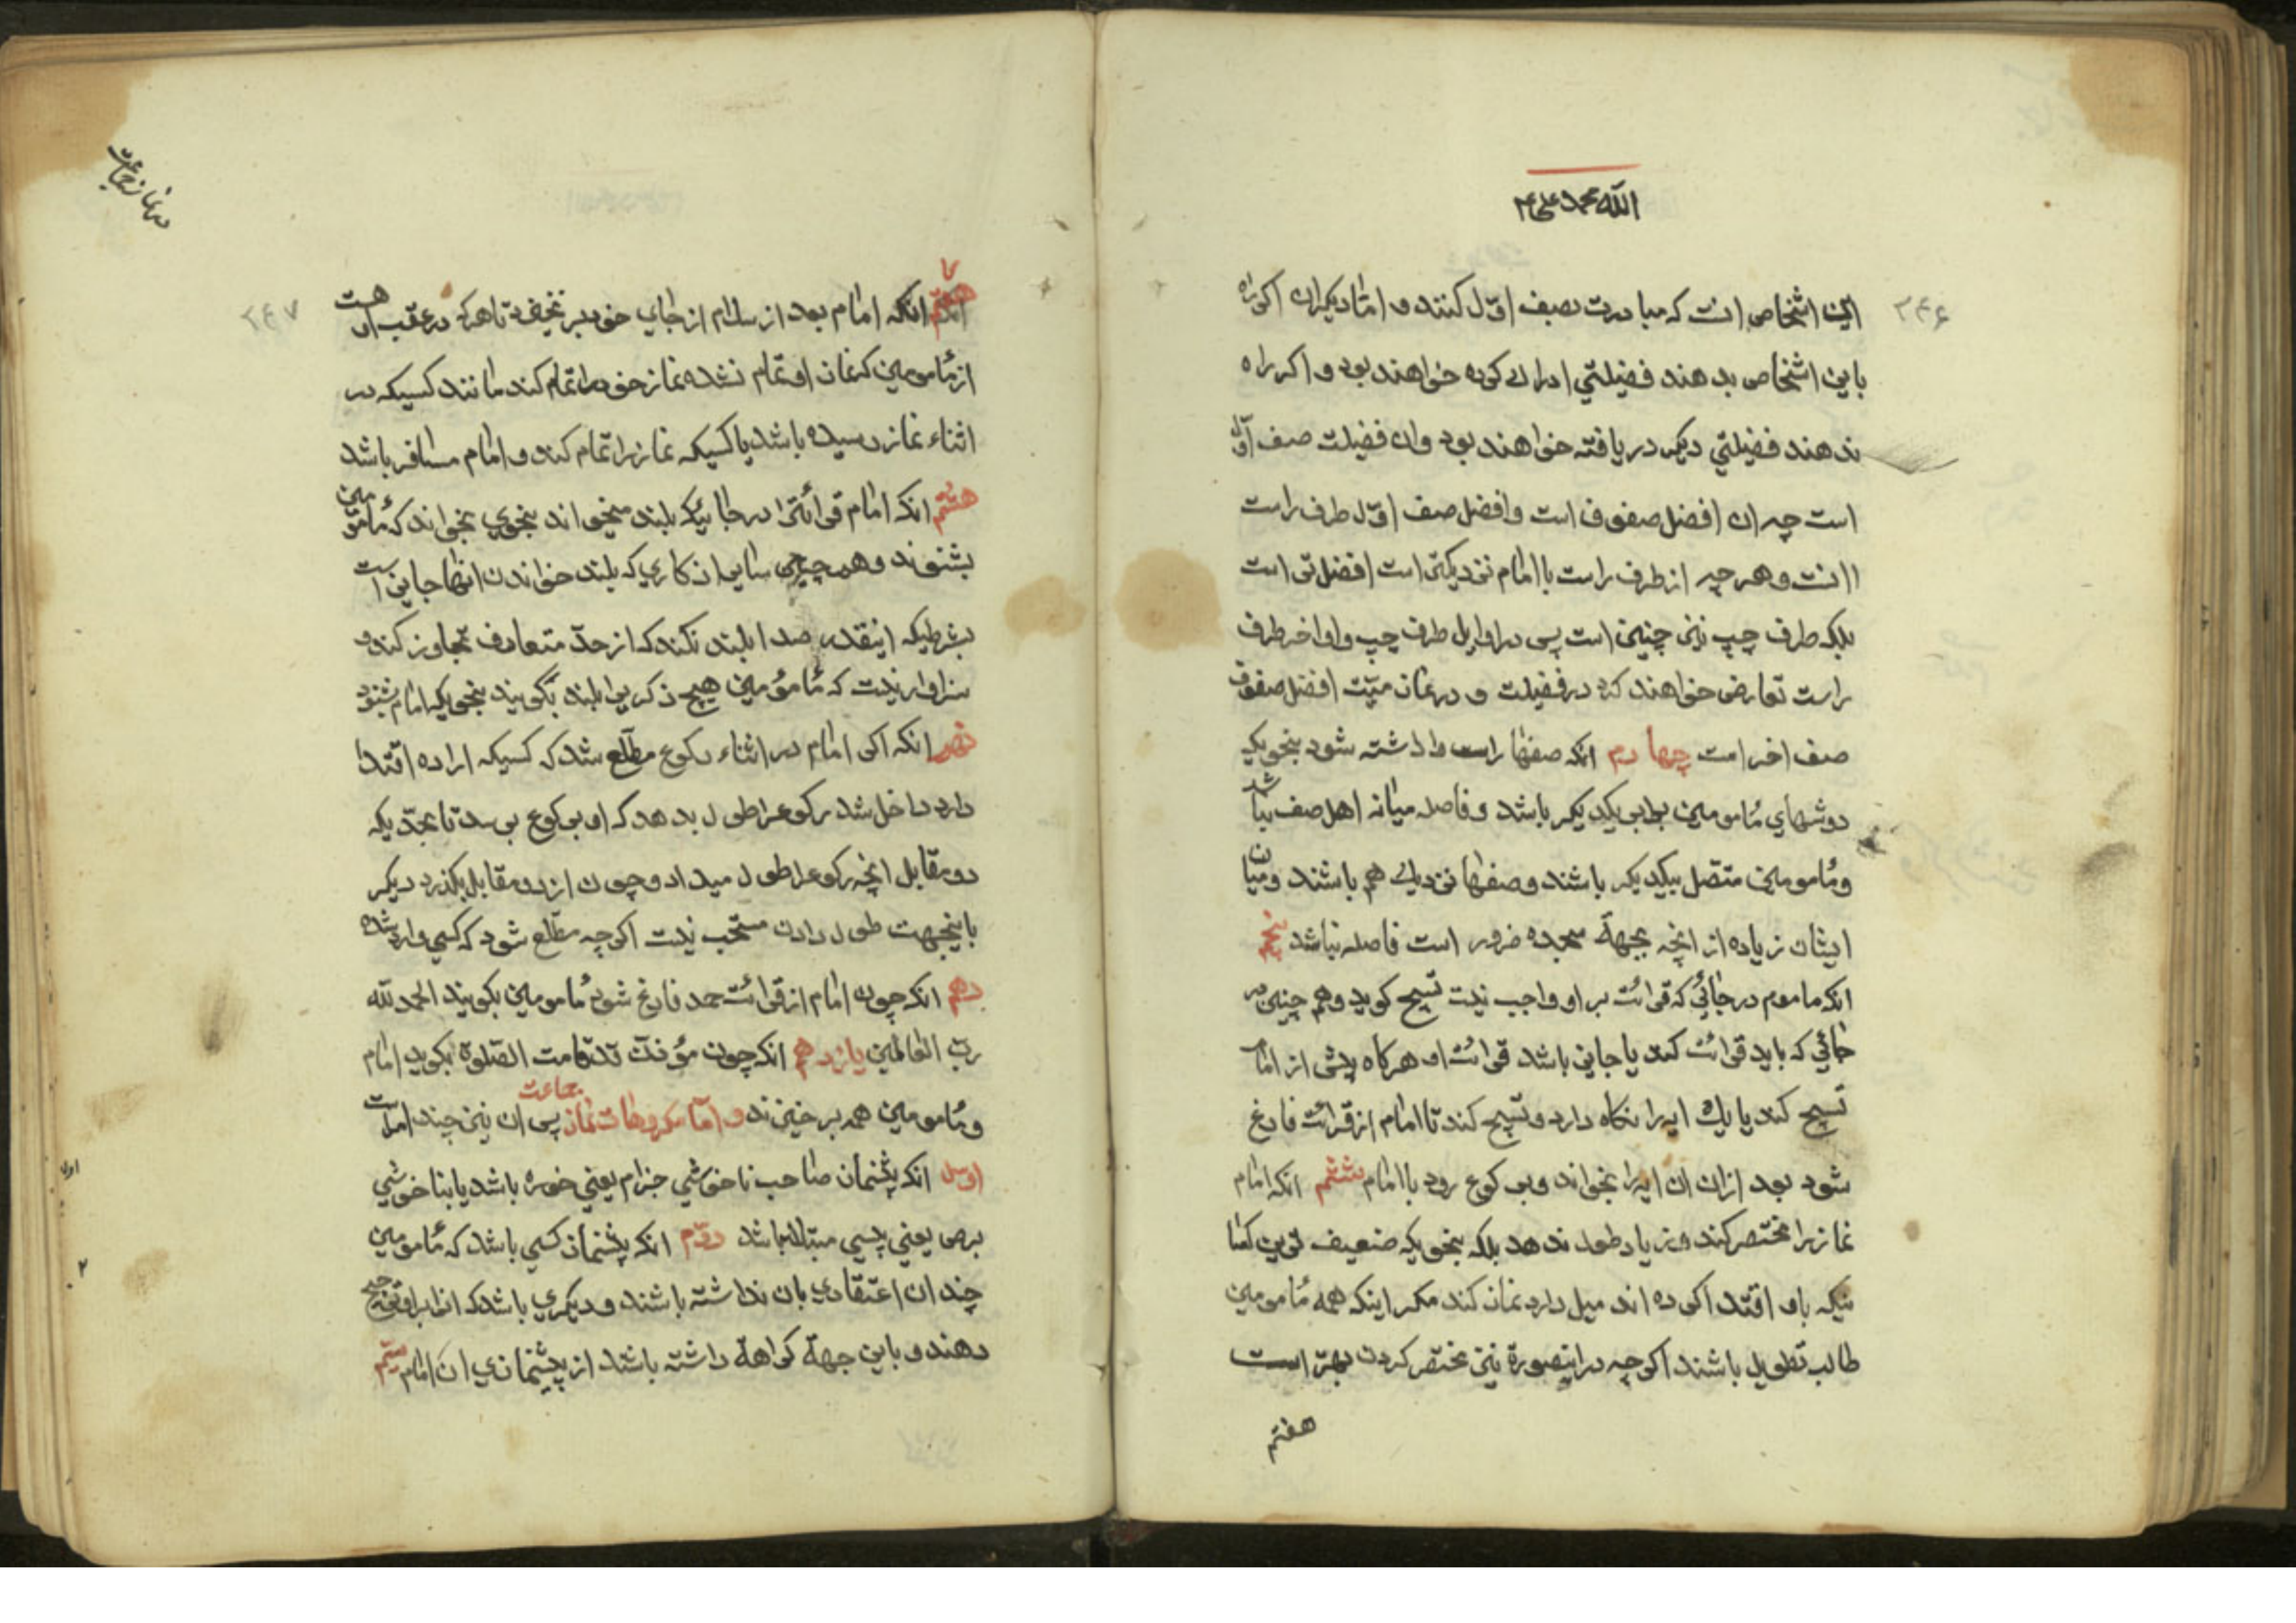 الله محمد علی ع
۲۴۶
این اشخاص انست که مبادرت بصف اوّل کنند و امّا دیکران اکر راه
باین اشخاص بدهند فضیلتي ادراك کرده خواهند بود و اکر راه
ندهند فضیلتي دیکر دریافته خواهند بود وان فضیلت صف اوّل
است چه ان افضل صفوف است وافضل صف اوّل طرف راست
اانست و هر چه از طرف راست باامام نزدیکتر است افضل تر است
بلکه طرف چپ نیز چنین است پس در اوایل طرف چپ واواخر طرف
راست تعارض خواهند کرد در فضیلت و در نماز میّت افضل صفوف
صف اخر است چهارم انکه صفها راست واداشته شود بنحویکه
دوشهاي مُامومین برابر یکدیکر باشد و فاصله میانه اهل صف نباشد
ومُامومین متصل بیکدیکر باشند وصفها نزدیك هم باشند ومیان
ایشان زیاده از انچه بجهة سجده ضرور است فاصله نباشد پنجم
انکه ماموم در جائي که قرائت بر او واجب نیست تسبیح کوید وهم چنین در
جائي که باید قرائت کند یا جایز باشد قرائت او هرکاه پیش از امام
تسبیح کند یا یك ایه را نکاه دارد وتسبیح کند تا امام از قرائت فارغ
شود بعد ازان ان ایه را بخواند وبرکوع رود باامام ششم انکه امام
نماز را مختصر کند و زیاد طول ندهد بلکه بنحویکه ضعیف ترین کسا
نیکه باو اقتدا کرده اند میل دارد نماز کند مکر اینکه همه مُامومین
طالب تطویل باشند اکرچه در اینصورة نیز مختصر کردن بهتر است
هفتم
در نماز جماعت
۲۴۷
هفتم انکه امام بعد از سلام از جاي خود بر نخیزد تا هرکه در عقب او هست
از مُامومین که نماز او تمام نشده نماز خود را تمام کند مانند کسیکه در
اثناء نماز رسیده باشد یا کسیکه نماز را تمام کند و امام مسافر باشد
هشتم انکه امام قرائت را در جائیکه بلند میخواند بنحوي بخواند که مُامومین
بشنوند و همچنین سایر اذکاري که بلند خواندن انها جایز است
بشرطیکه اینقدر صدا بلند نکند که از حدّ متعارف تجاوز کند و
سزاوار نیست که مُامومین هیچ ذکریرا بلند بکویند بنحویکه امام بشنود
نهم انکه اکر امام در اثناء رکوع مطّلع شد که کسیکه اراده اقتدا
دارد داخل شد رکوعرا طول بدهد که او برکوع برسد تا بحدّیکه
دو مقابل انچه رکوعرا طول میداد و چون از دو مقابل بکذرد دیکر
باینجهت طول دادن مستحب نیست اکرچه مطّلع شود که کسي وارد شده
دهم انکه چون امام از قرائت حمد فارغ شود مُامومین بکویند الحمد لله
ربّ العالمین یازدهم انکه چون مؤذن قد قامت الصّلوة بکوید امام
ومُامومین همه برخیزند و امّا مکروهات نماز جماعت پس ان نیز چند امر است
اوّل انکه پیشنماز صاحب ناخوشي جزام یعني خوره باشد یا بناخوشي
برص یعني پیسي مبتلا باشد دوّم انکه پیشنماز کسي باشد که مُامومین
چندان اعتقادي بان نداشته باشند و دیکري باشد که انرا براو ترجیح
دهند و باین جهة کراهة داشته باشند از پیشنمازي ان امام سیّم